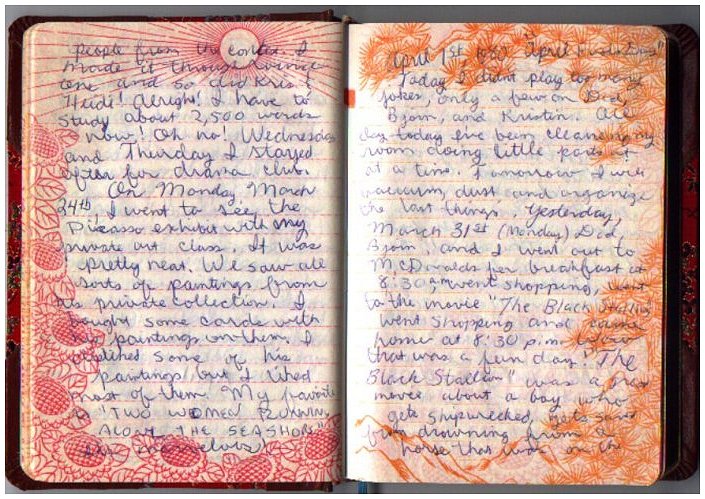 people from the contex. I
made it through
tene and so did Kris &
Heidi! Alright! I have to
study about 2,500 words
now! Oh no! Wednesday
and Thursday I stayed
after for drama club.
On Monday, March
24th, I went to see the
Picasso exhibit with my
private art class. It was
pretty neat. We saw all
sorts of paintings from
his private collection. I
bought some cards with
his paintings on them. I
some of his
paintings but I liked
most of them. My favorite
is "TWO WOMEN RUNNING
ALONG THE SEASHORE"
marvelous!
April 1st, 1980 "April Fools Day"
Today I didnt play too many
jokes, only a few on Dad,
Bjorn, and Kristin. All
day today I've been cleaning my
room doing little parts
at a time. Tomorrow I will
vacuum, dust and organize
the last things. Yesterday,
March 31st (Monday) Dad,
Bjorn, and I went out to
McDonalds for breakfast at
8:30 am went shopping, went
to the movie "The Black Stallion"
went shopping and came
home at 8:30 p.m.
that was a fun day! "The
Black Stallion" was a
movie about a boy who
gets shipwrecked, gets saved
from drowning from a
horse that was on the